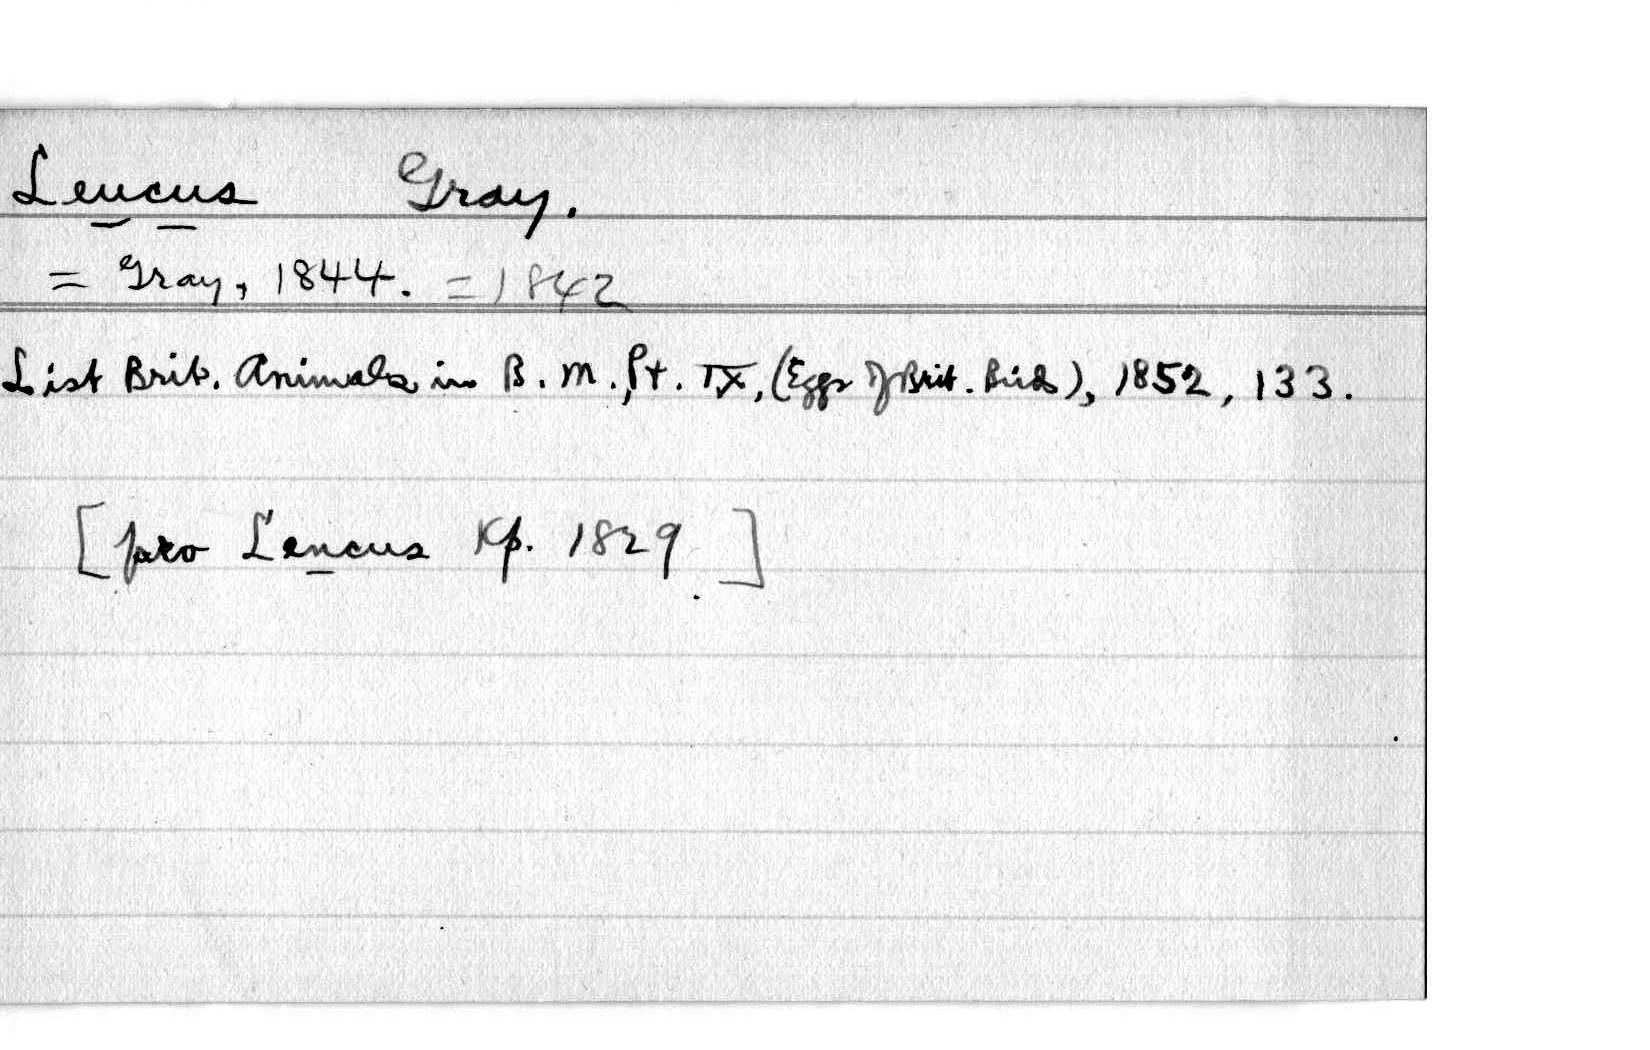 Leucus Gray.
= Gray, 1844. = 1842
List Brit. Animals in B. M., Pt. IX, (Eggs of Brit. Birds), 1852, 133.
[pro Lencus Kp. 1829.]